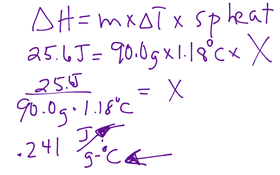 ΔH = m × ΔT × sp heat
25.6J = 90.0g × 1.18°C × X
25.6J / 90.0g · 1.18°C = X
.241 J / g-°C